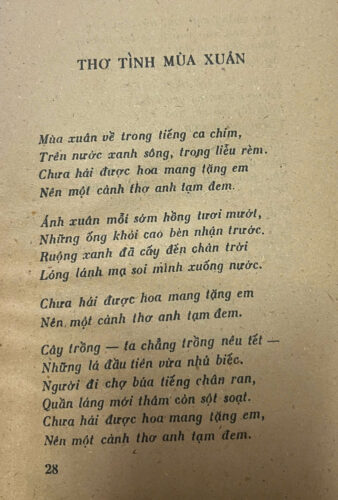 THƠ TÌNH MÙA XUÂN
Mùa xuân về trong tiếng ca chim,
Trên nước xanh sông, trong liễu rèm.
Chưa hái được hoa mang tặng em
Nên một cành thơ anh tạm đem.
Ánh xuân mỗi sớm hồng tươi mượt,
Những ống khói cao bên nhận trước.
Ruộng xanh đã cấy đến chân trời
Lóng lánh mạ soi mình xuống nước.
Chưa hái được hoa mang tặng em
Nên một cành thơ anh tạm đem.
Cây trồng — ta chẳng trồng nêu tết —
Những lá đầu tiên vừa nhú biếc.
Người đi chợ búa tiếng chân ran,
Quần láng mới thâm còn sột soạt.
Chưa hái được hoa mang tặng em,
Nên một cành thơ anh tạm đem.
28